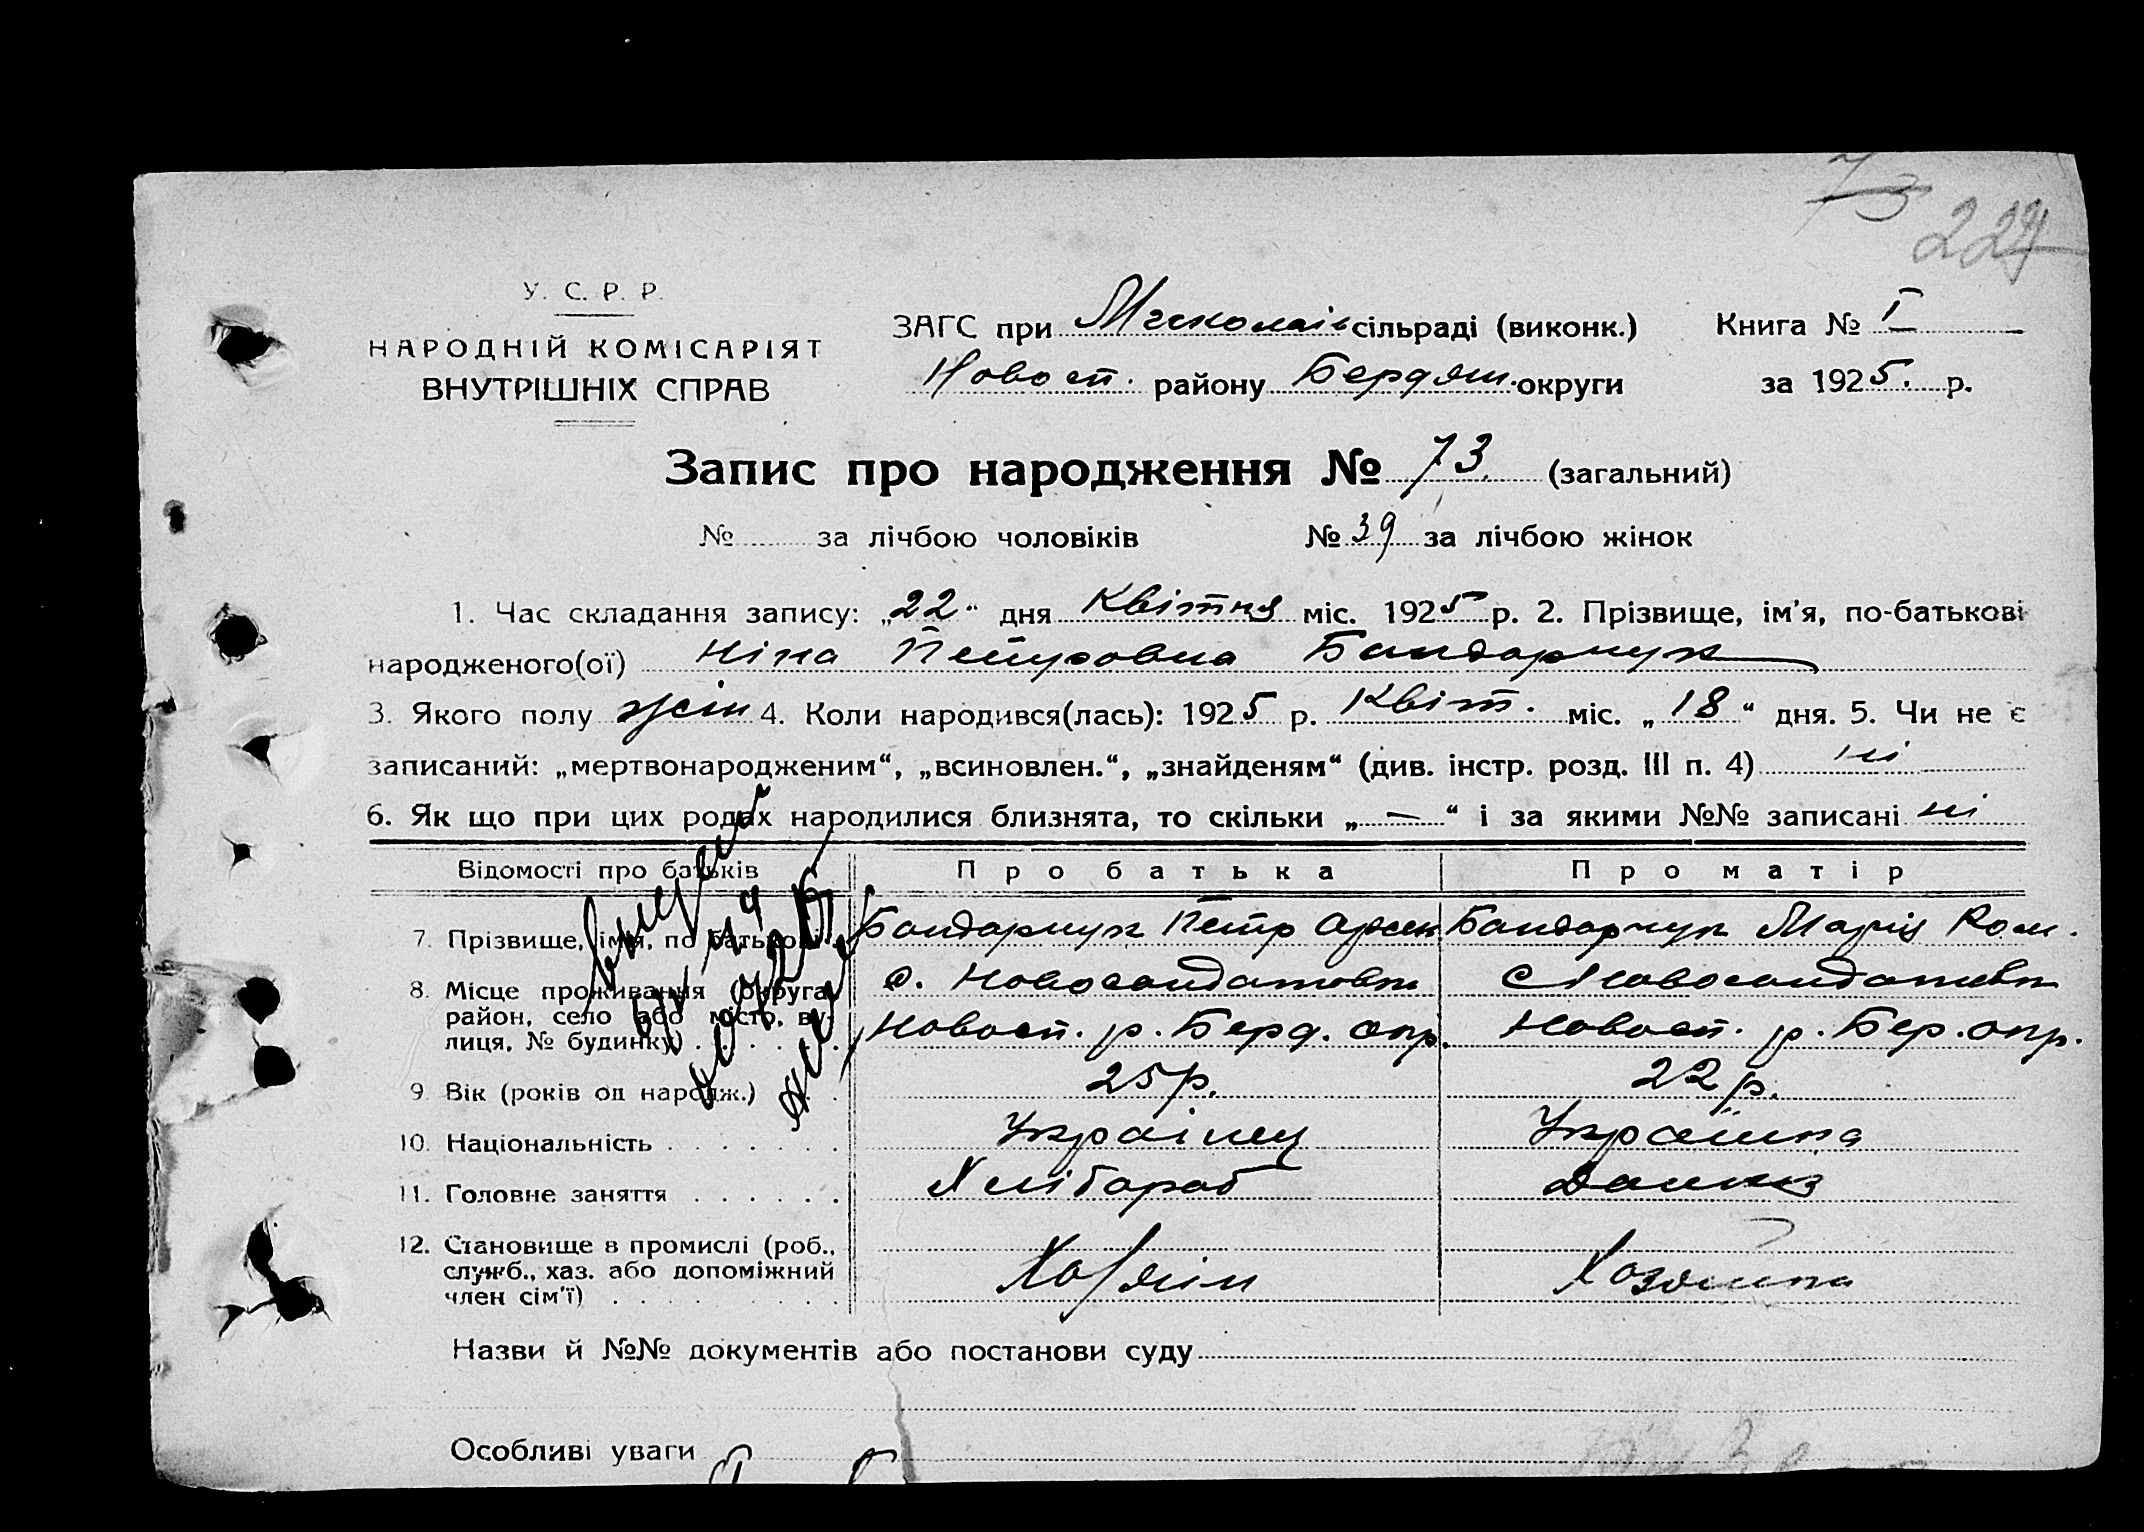 73
227
У. С. Р. Р.
НАРОДНІЙ КОМІСАРІЯТ
ВНУТРІШНІХ СПРАВ
ЗАГС при Миколаїв сільраді (виконк.) Книга № I
Новосп. району Бердян. округи за 1925. р.
Запис про народження № 73. (загальний)
№ за лічбою чоловіків № 39 за лічбою жінок
1. Час складання запису: „22“ дня Квітня міс. 1925 р. 2. Прізвище, ім'я, по-батькові
народженого(ої) Ніна Петровна Бандарчук
3. Якого полу жін 4. Коли народився(лась): 1925 р. Квіт. міс. „18“ дня. 5. Чи не є
записаний: „мертвонародженим“, „всиновлен.“, „знайденям“ (див. інстр. розд. III п. 4) ні
6. Як що при цих родах народилися близнята, то скільки „—“ і за якими №№ записані ні
Відомості про батьків Про батька Про матір
7. Прізвище, імя, по батькові Бандарчук Петр Бандарчук Марія Ром.
8. Місце проживання (округа, с. Новосолдатовка с Новосолдатовка
район, село або місто, ву-
лиця, № будинку) Новосп. р. Берд. окр. Новосп. р. Бер. окр.
9. Вік (років од народж.) 25 р. 22 р.
10. Національність Україінец Українка
11. Головне заняття Хлібороб
12. Становище в промислі (роб.,
служб., хаз. або допоміжний Хазяїн Хозяйка
член сім'ї)
Назви й №№ документів або постанови суду
Особливі уваги